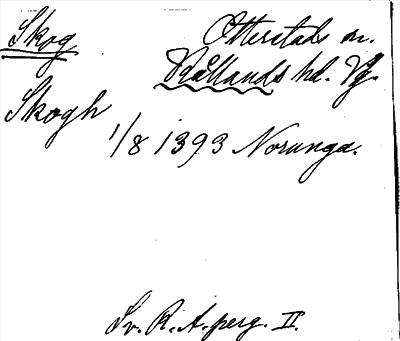 Skog
Otterstads sn.
Kållands hd. Vg.
Skogh
1/8 1393 Norunga.
Sv. R.A. perg. II.